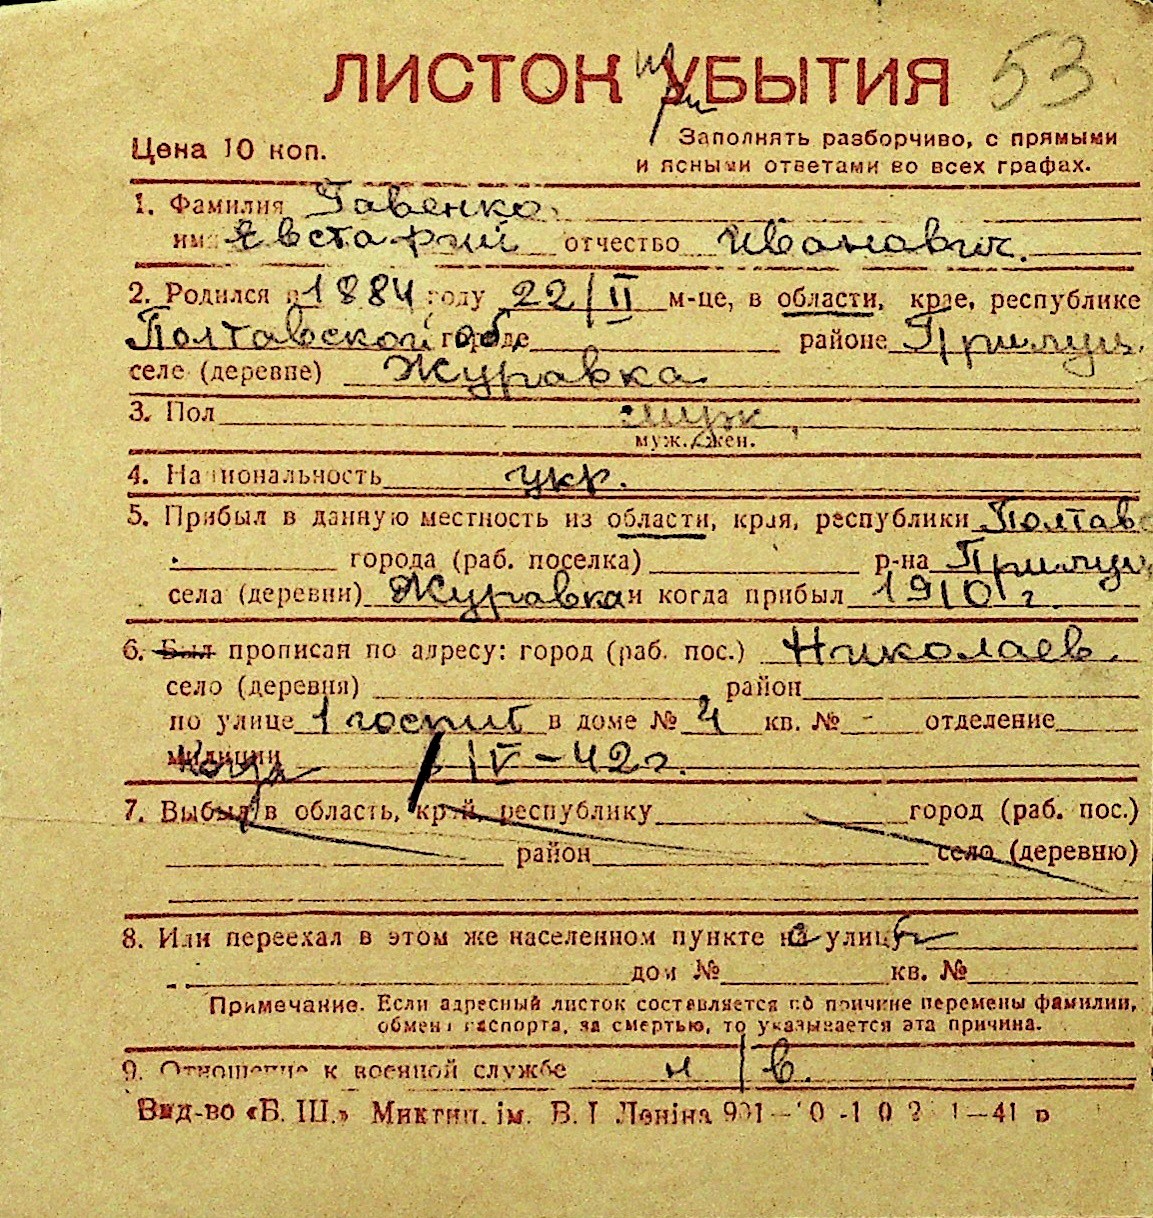 ЛИСТОК УБЫТИЯ при 53
Цена 10 коп. Заполнять разборчиво, с прямыми
и ясными ответами во всех графах.
1. Фамилия Гавенко
имя Евстафий отчество Иванович.
2. Родился в 1884 году 22/II м-це, в области, крае, республике
Полтавской об. городе районе Прилуц.
селе (деревне) Журавка
3. Пол муж
муж. жен.
4. Национальность укр.
5. Прибыл в данную местность из области, края, республики Полтавс
города (раб. поселка) р-на Прилуц
села (деревни) Журавка и когда прибыл 1910 г.
6. Был прописан по адресу: город (раб. пос.) Николаев.
село (деревня) район
по улице 1 госпит в доме № 4 кв. № - отделение
милиции Когда 1/IV-42 г.
7. Выбыл в область, край, республику город (раб. пос.)
район село (деревню)
8. Или переехал в этом же населенном пункте на улицу
дом № кв. №
Примечание. Если адресный листок составляется по причине перемены фамилии,
обмена паспорта, за смертью, то указывается эта причина.
9. Отношение к военной службе н/в.
Вид-во «Б. Ш.» Миктип. ім. В. І Леніна